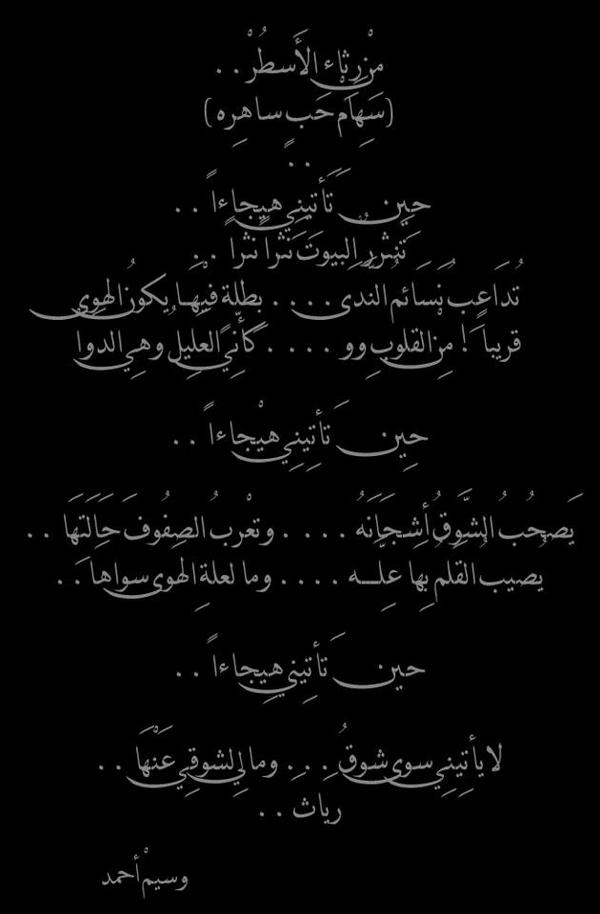 مْن رِثاء الأَسطُرْ . .
(سَهَامْ حَب ساهِره)
. .
حِين تَأتيني هيجاءاً . .
تَنثرُ البيوتَ نثراً نثراً . .
تُدَاعبُ نَسَائمُ النَّدَى . . . . بِطلةٍ فيْهَا يكونُ الهوى
قريباً ! مِنْ القلوبِ وو . . . . كأنّي العليلُ وهِي الدوا
حِين تأتِينِي هيْجاءاً . .
يَصحُبُ الشَّوقُ أشجَانَهُ . . . . وتغْربُ الصفُوفَ حَالَتَهَا . .
يُصيبُ القَلمُ بِها عِلَّـه . . . . وما لعلةِ الهوى سواها . .
حين تأتِيني هيِجاءاً . .
لا يأتِينِي سوى شوقُ . . . وما لِي لشوقِي عَنْهَا . .
رياث . .
وسيمْ أحمد